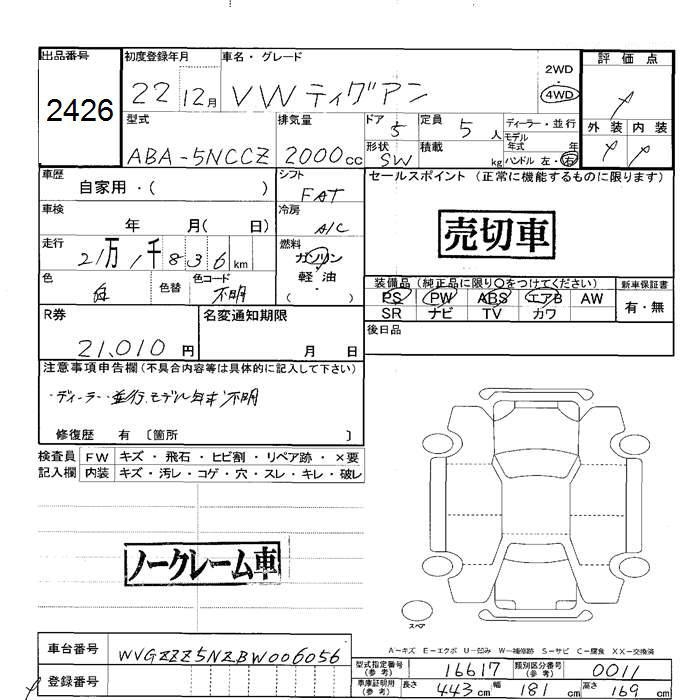 出品番号
2426
初度登録年月
22 12月
車名・グレード
VW ティグアン
2WD
・
4WD
評価点
外装 内装
型式
ABA-5NCCZ
排気量
2000cc
ドア
5
定員
5人
ディーラー・並行
モデル
年式 年
形状
SW
積載
kg
ハンドル 左・右
車歴
自家用・( )
シフト
FAT
セールスポイント (正常に機能するものに限ります)
売切車
車検
年 月( 日)
冷房
A/C
走行
21万1千836km
燃料
ガソリン
軽・油
( )
色
白
色替
色コード
不明
装備品(純正品に限り○をつけてください)
PS PW ABS エアB AW
SR ナビ TV カワ
新車保証書
有・無
R券
21,010円
名変通知期限
月 日
後日品
注意事項申告欄(不具合内容等は具体的に記入して下さい)
・ディーラー・並行、モデル年式不明
修復歴 有 〔箇所 〕
検査員
記入欄
FW キズ・飛石・ヒビ割・リペア跡・×要
内装 キズ・汚レ・コゲ・穴・スレ・キレ・破レ
ノークレーム車
スペア
A－キズ E－エクボ U－凹み W－補修跡 S－サビ C－腐食 XX－交換済
車台番号
WVGZZZ5NZBW006056
登録番号
型式指定番号
(参考)
16617
類別区分番号
(参考)
0011
車庫証明用
(参考)
長さ 443cm 幅 181cm 高さ 169cm